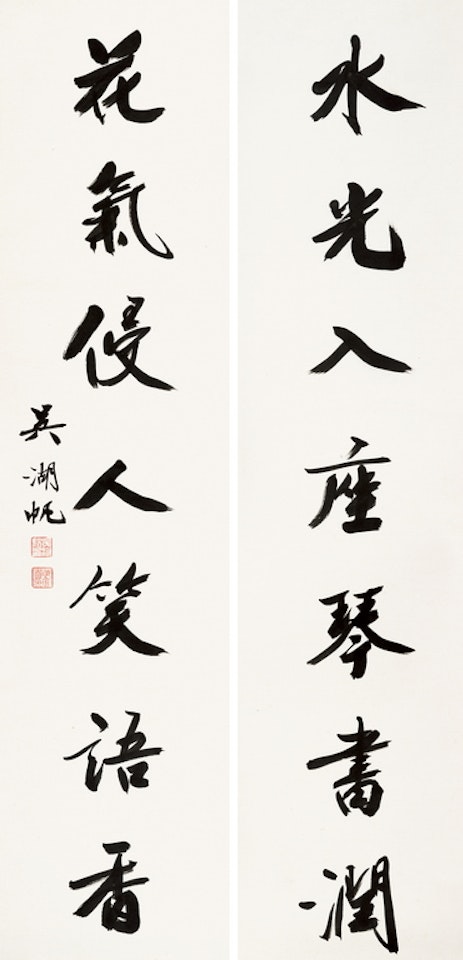 水光入座琴書潤
花氣侵人笑語香
吳湖帆